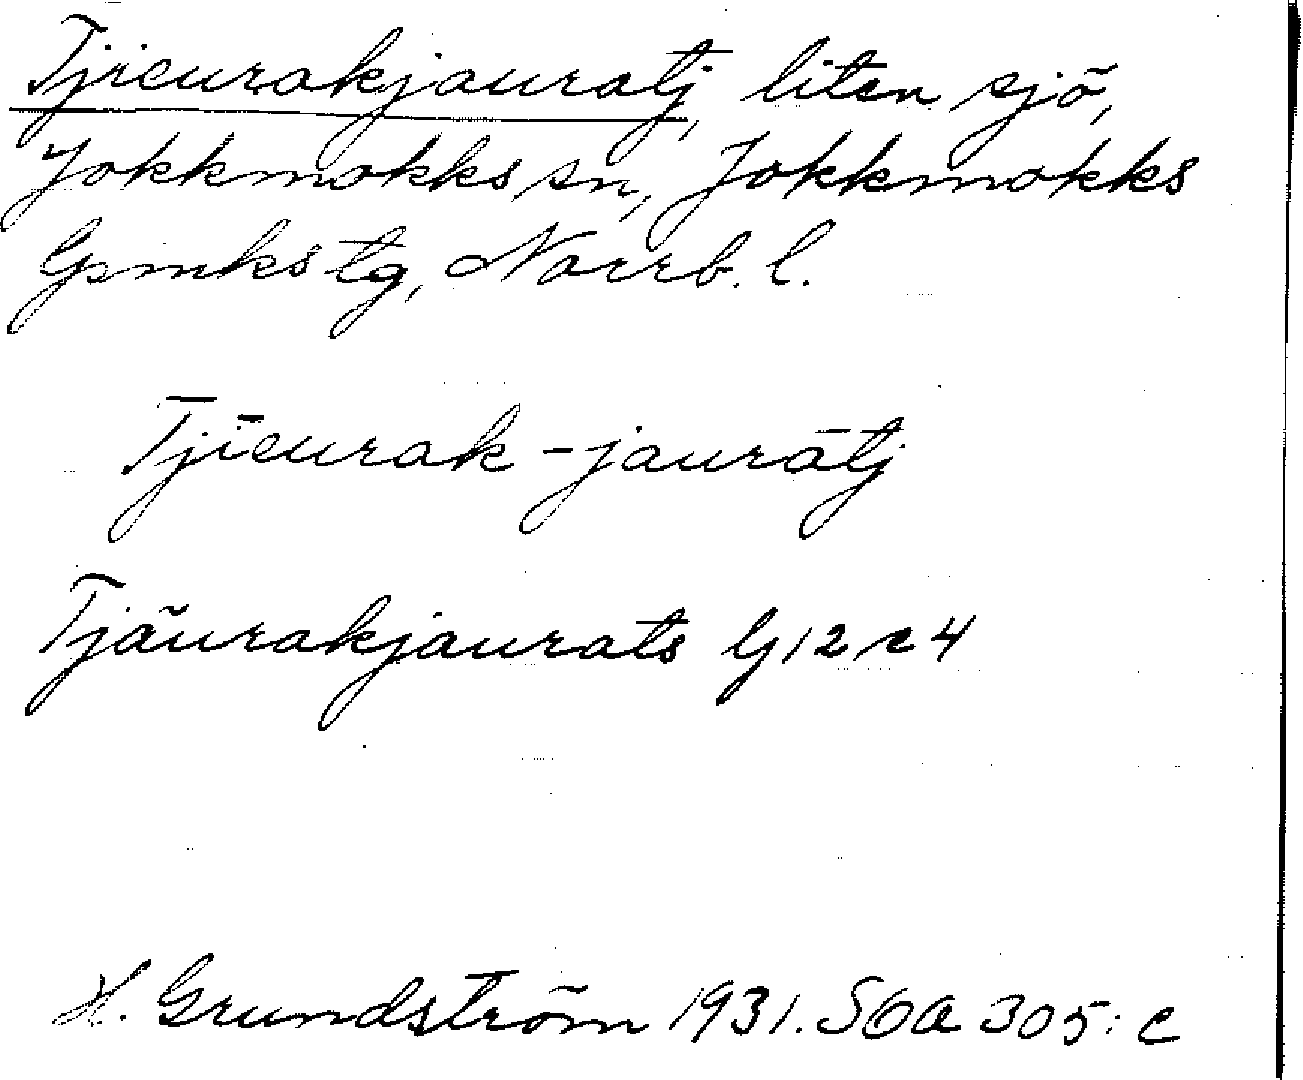 Tjieurakjauratj, liten sjö,
Jokkmokks sn, Jokkmokks
Gsmkstg, Norrb. l.
Tjīeurak-jaurātj
Tjäurakjaurats G 12 r 4
H. Grundström 1931. SOA 305: c